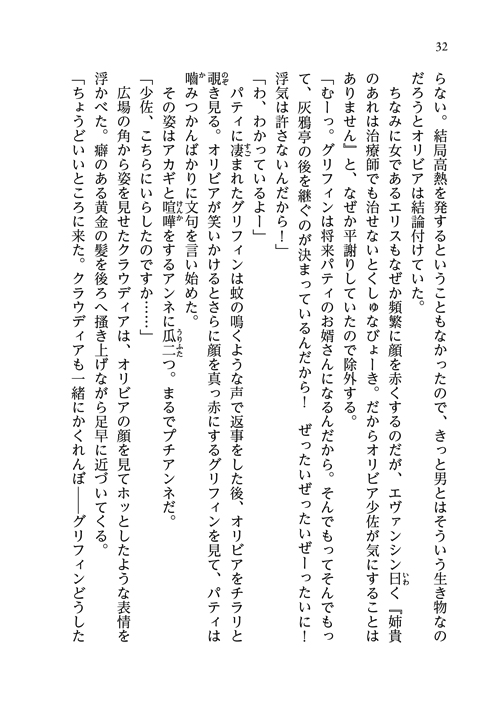 32
らない。結局高熱を発するということもなかったので、きっと男とはそういう生き物なの
だろうとオリビアは結論付けていた。
ちなみに女であるエリスもなぜか頻繁に顔を赤くするのだが、エヴァンシン曰く『姉貴
のあれは治療師でも治せないとくしゅなびょーき。だからオリビア少佐が気にすることは
ありません』と、なぜか平謝りしていたので除外する。
「むーっ。グリフィンは将来パティのお婿さんになるんだから。そんでもってそんでもっ
て、灰鴉亭の後を継ぐのが決まっているんだから！　ぜったいぜったいぜーったいに！
浮気は許さないんだから！」
「わ、わかっているよー」
パティに凄まれたグリフィンは蚊の鳴くような声で返事をした後、オリビアをチラリと
覗き見る。オリビアが笑いかけるとさらに顔を真っ赤にするグリフィンを見て、パティは
嚙みつかんばかりに文句を言い始めた。
その姿はアカギと喧嘩をするアンネに瓜二つ。まるでプチアンネだ。
「少佐、こちらにいらしたのですか……」
広場の角から姿を見せたクラウディアは、オリビアの顔を見てホッとしたような表情を
浮かべた。癖のある黄金の髪を後ろへ搔き上げながら足早に近づいてくる。
「ちょうどいいところに来た。クラウディアも一緒にかくれんぼ――グリフィンどうした